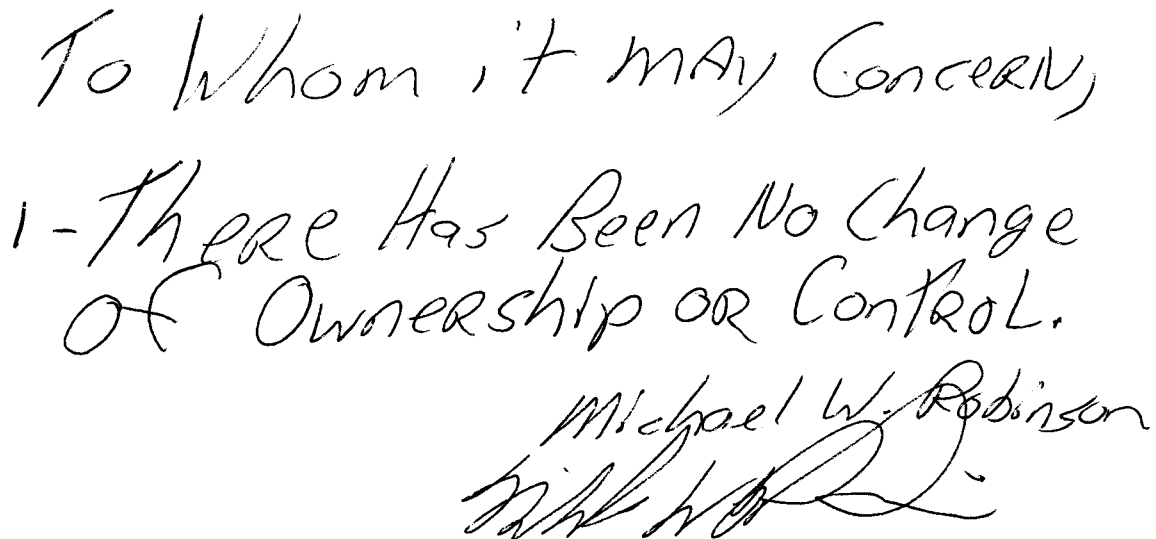 To Whom it MAy ConceRN,
1-TheRe Has Been No Change
of OwneRship OR ContRoL.
Michael W. Robinson